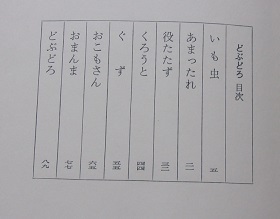 どぶどろ 目次
いも虫 五
あまったれ 二一
役たたず 三一
くろうと 四四
ぐず 五五
おこもさん 六五
おまんま 七七
どぶどろ 八九